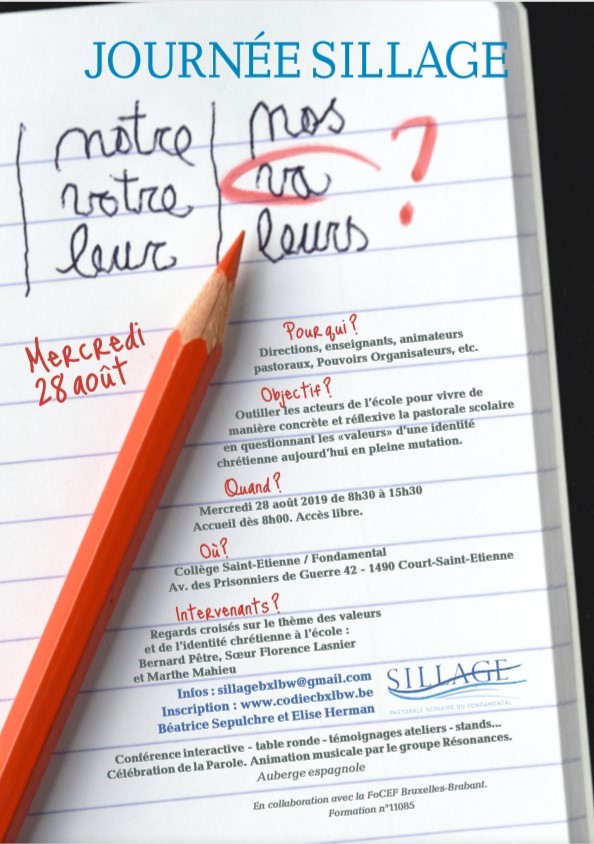 JOURNÉE SILLAGE
notre nos
votre va ?
leur leurs
Mercredi
28 août
Pour qui?
Directions, enseignants, animateurs
pastoraux, Pouvoirs Organisateurs, etc.
Objectif?
Outiller les acteurs de l'école pour vivre de
manière concrète et réflexive la pastorale scolaire
en questionnant les «valeurs» d'une identité
chrétienne aujourd'hui en pleine mutation.
Quand?
Mercredi 28 août 2019 de 8h30 à 15h30
Accueil dès 8h00. Accès libre.
Où?
Collège Saint-Etienne / Fondamental
Av. des Prisonniers de Guerre 42 - 1490 Court-Saint-Etienne
Intervenants?
Regards croisés sur le thème des valeurs
et de l'identité chrétienne à l'école :
Bernard Pêtre, Sœur Florence Lasnier
et Marthe Mahieu
Infos : sillagebxlbw@gmail.com
Inscription : www.codiecbxlbw.be
Béatrice Sepulchre et Elise Herman
SILLAGE
PASTORALE SCOLAIRE DU FONDAMENTAL
Conférence interactive - table ronde - témoignages ateliers - stands...
Célébration de la Parole. Animation musicale par le groupe Résonances.
Auberge espagnole
En collaboration avec la FoCEF Bruxelles-Brabant.
Formation n°11085